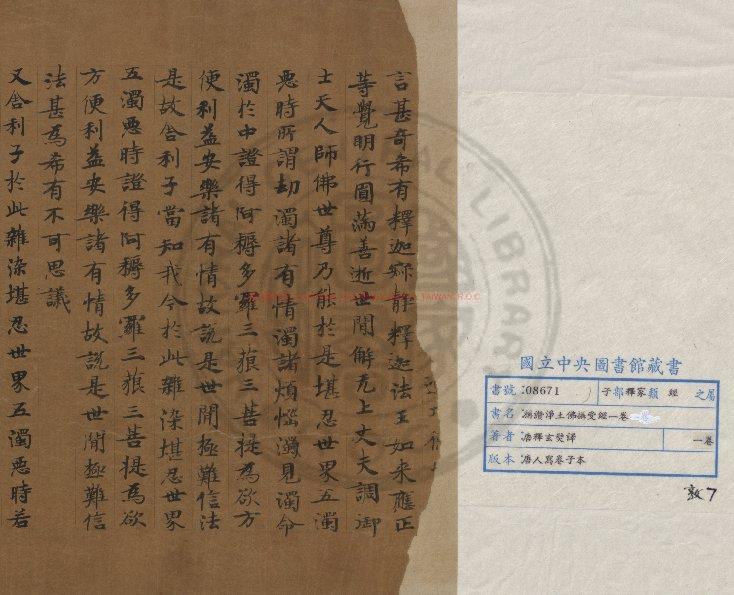 言甚奇希有釋迦寂静釋迦法王如来應正
等覺明行圓滿善逝世間解无上丈夫調御
士天人師佛世尊乃能於是堪忍世界五濁
惡時所謂劫濁諸有情濁諸煩惱濁見濁命
濁於中證得阿耨多羅三藐三菩提為欲方
便利益安樂諸有情故説是世間極難信法
是故舍利子當知我今於此雜染堪忍世界
五濁惡時證得阿耨多羅三藐三菩提為欲
方便利益安樂諸有情故説是世間極難信
法甚為希有不可思議
又舍利子於此雜染堪忍世界五濁惡時若
國立中央圖書館藏書
書號:08671
子部釋家類 經 之屬
書名:稱讚淨土佛攝受經一卷
著者:唐釋玄奘譯
一卷
版本:唐人寫卷子本
敦7
LIBRARY
TAIWAN R.O.C.